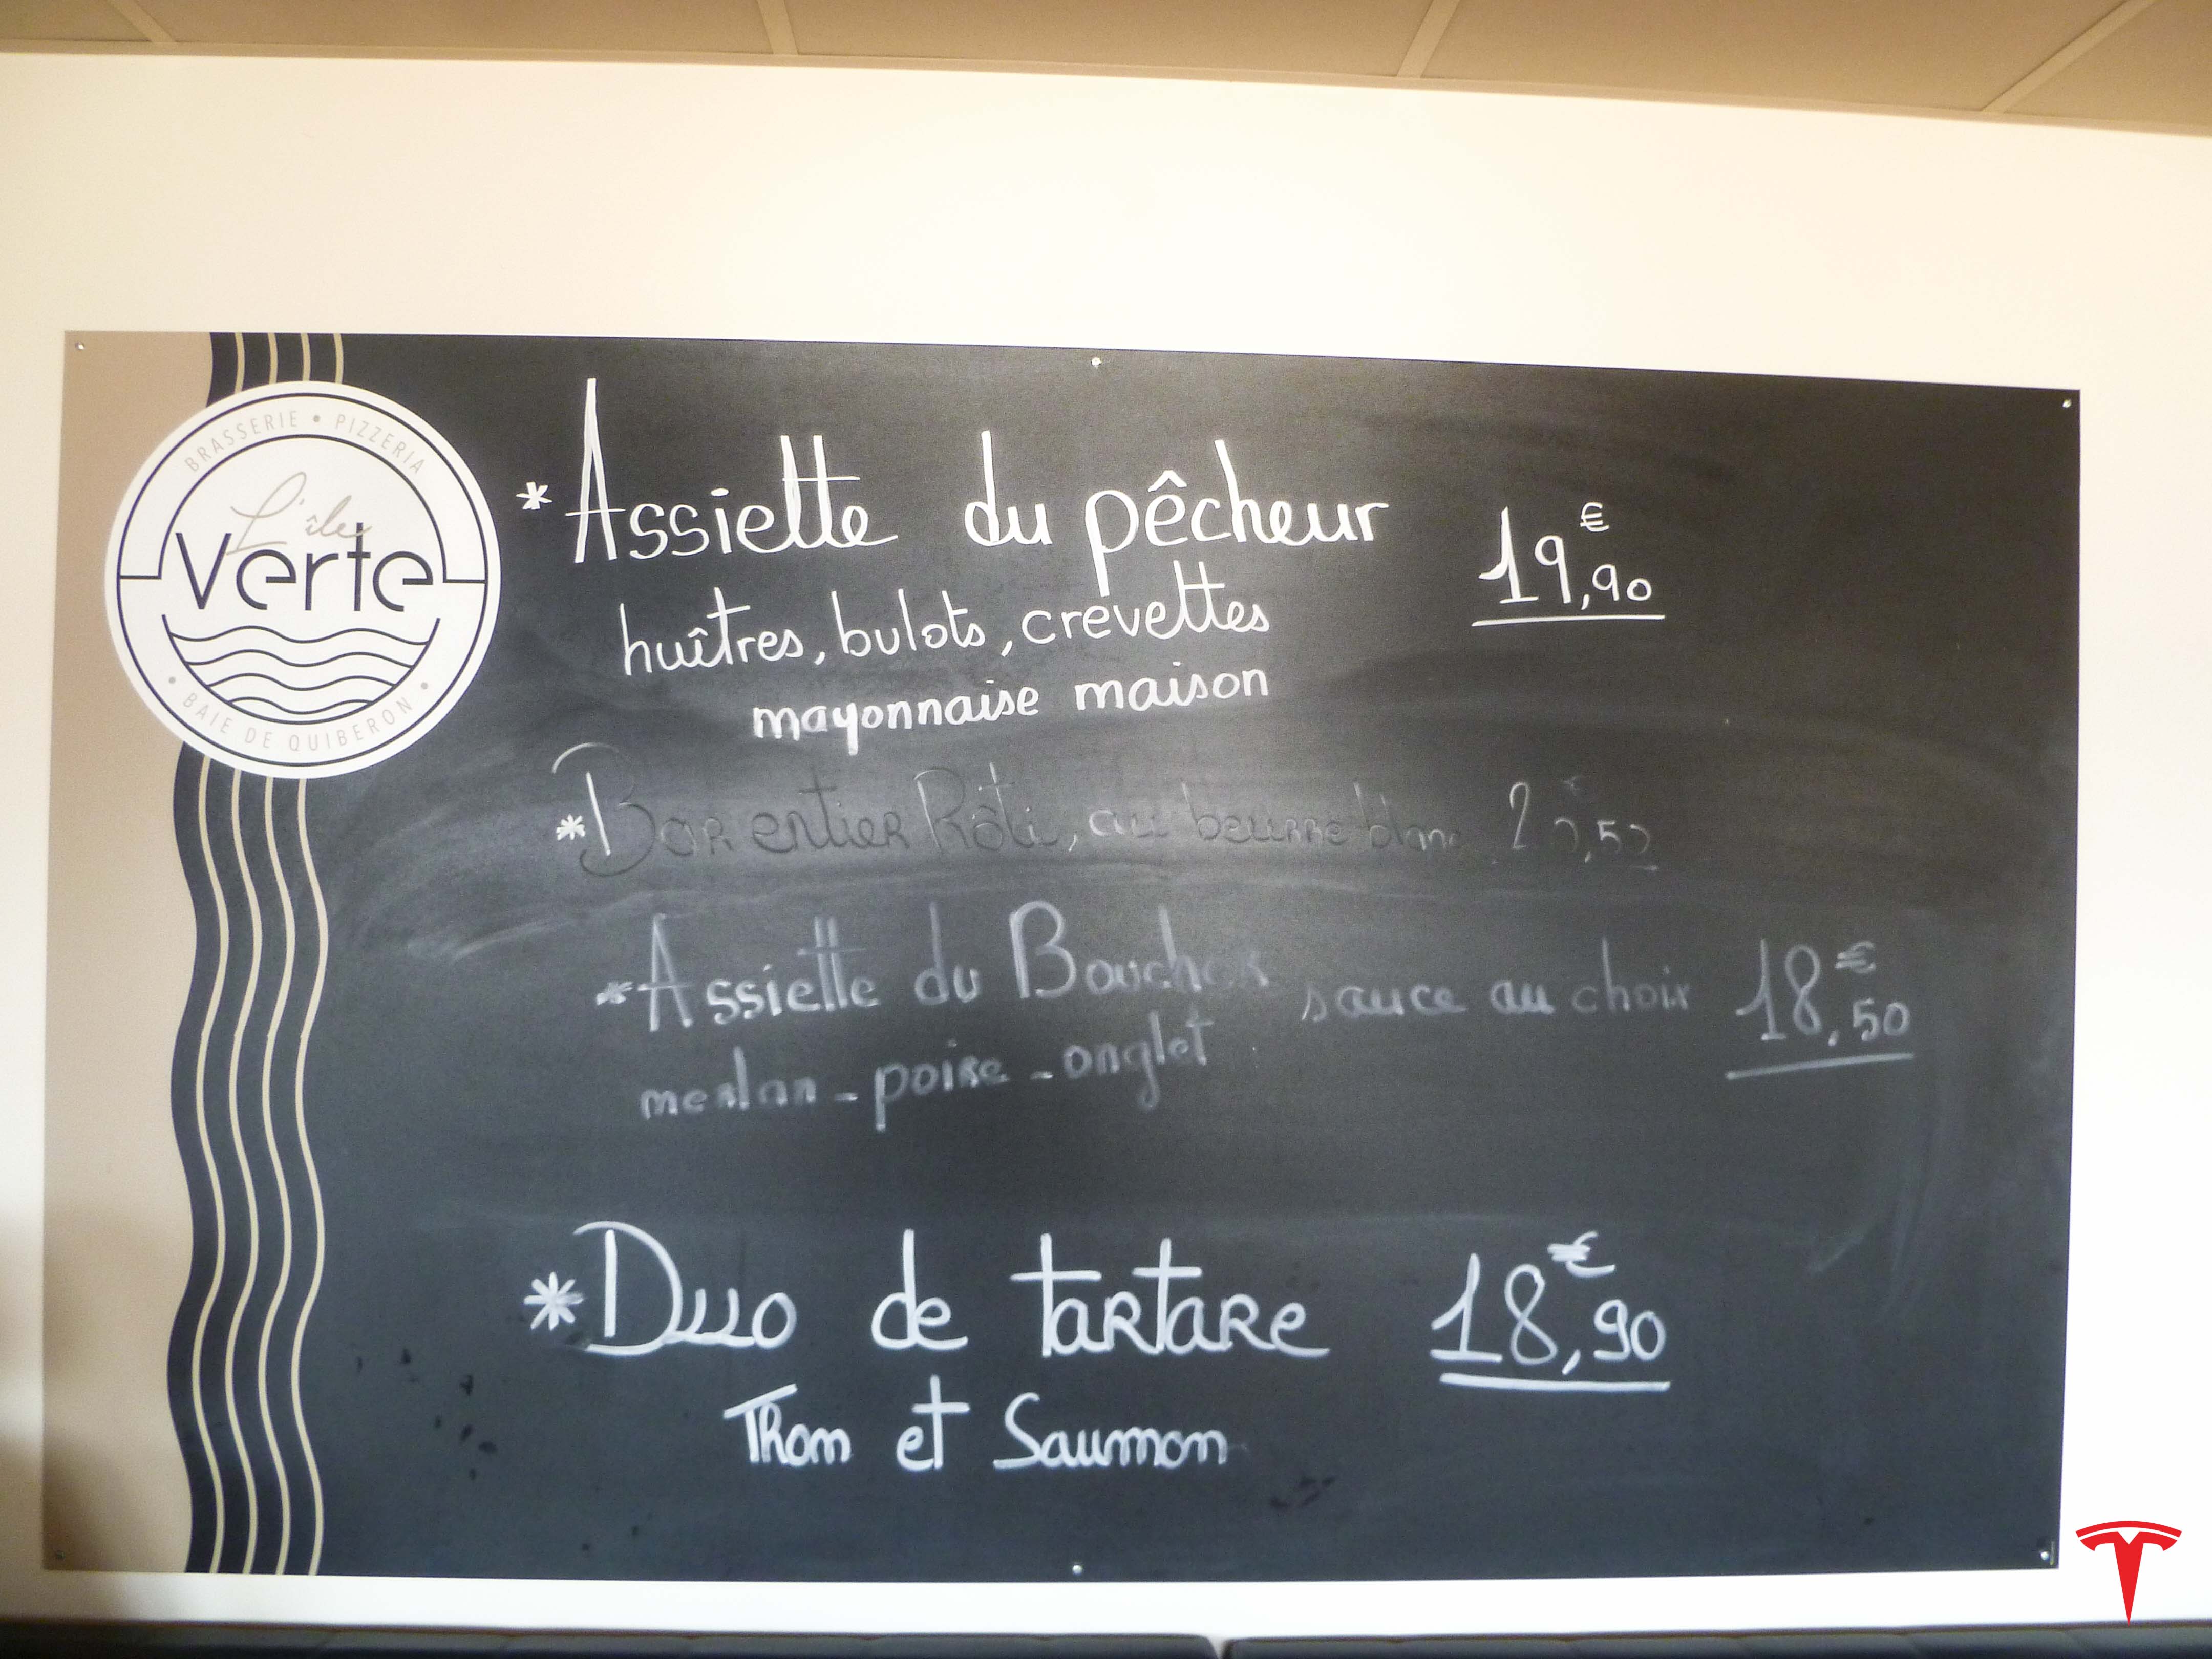 BRASSERIE • PIZZERIA
L'île
Verte
• BAIE DE QUIBERON •
*Assiette du pêcheur 19,90 €
huîtres, bulots, crevettes
mayonnaise maison
*Bar entier Rôti, au beurre blanc
*Assiette du Boucher sauce au choix 18,50 €
merlan - poire - onglet
*Duo de tartare 18,90 €
Thon et Saumon